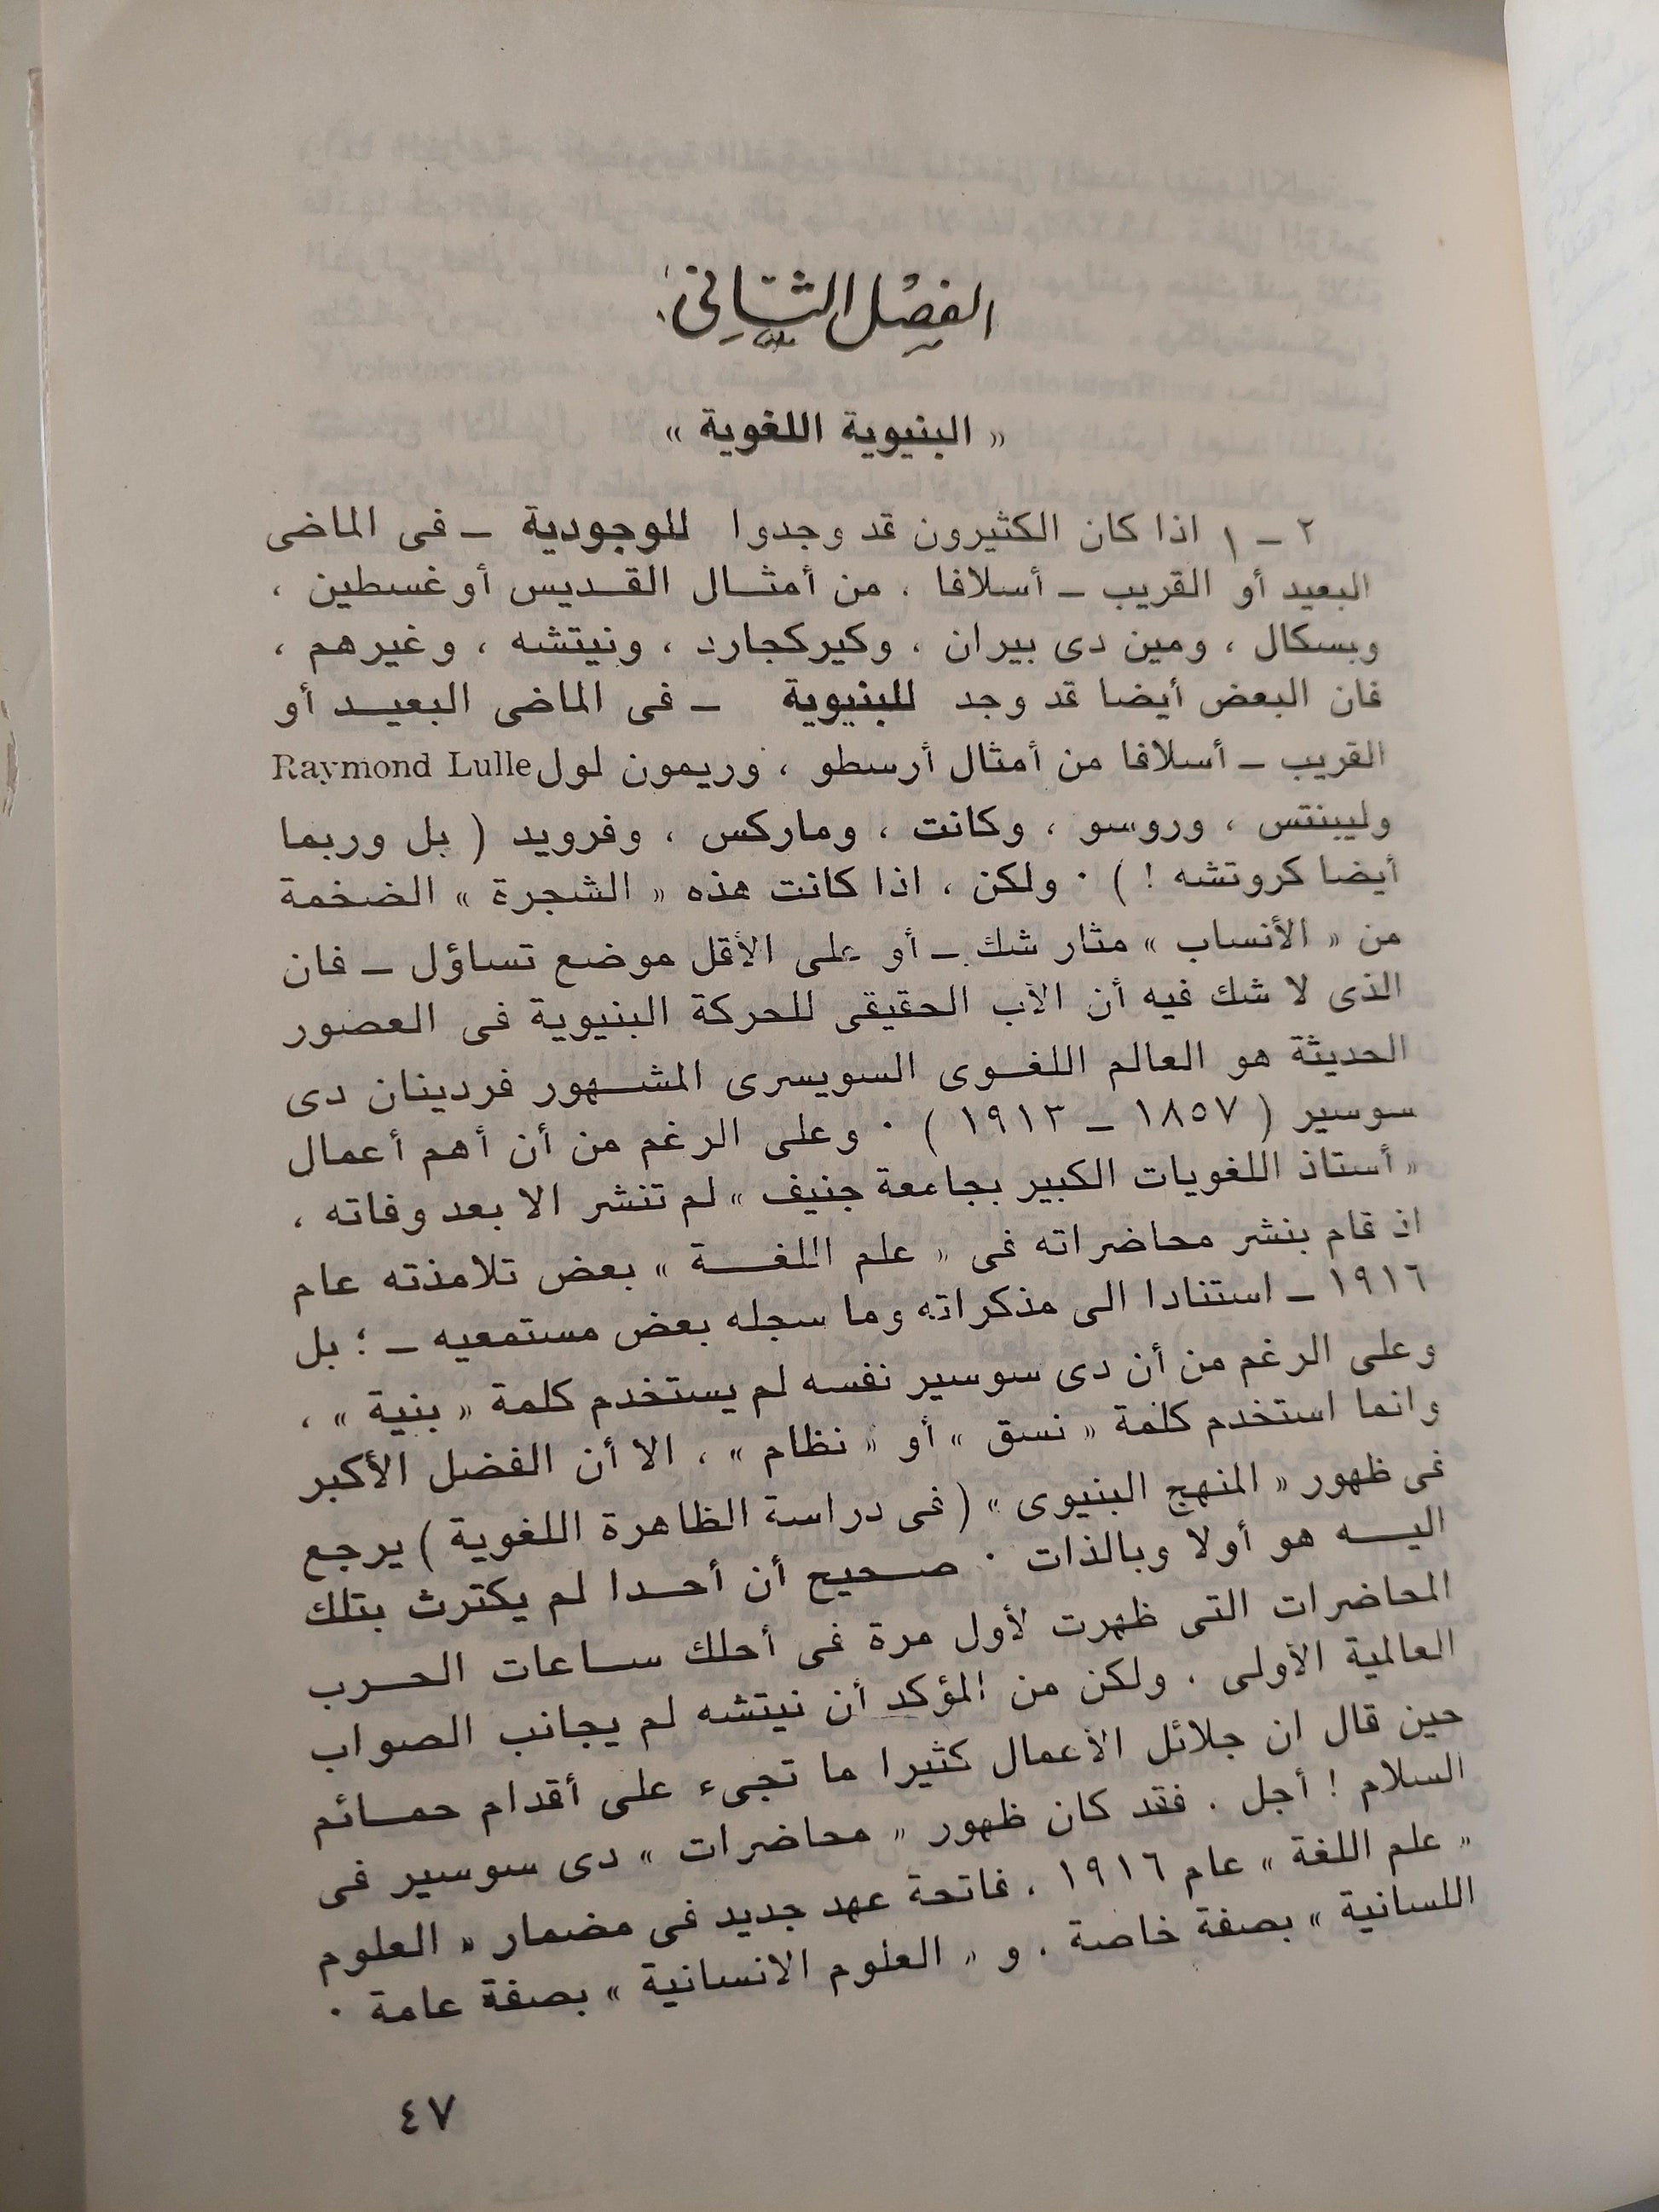 الفصل الثاني
« البنيوية اللغوية »
٢ – ١ اذا كان الكثيرون قد وجدوا للوجودية – فى الماضى
البعيد أو القريب – أسلافا ، من أمثــال القــديس أوغسطين ،
وبسكال ، ومين دى بيران ، وكيركجارد ، ونيتشه ، وغيرهم ،
فان البعض أيضا قد وجد للبنيوية – فى الماضى البعيــد أو
القريب – أسلافا من أمثال أرسطو ، وريمون لول Raymond Lulle
وليبنتس ، وروسو ، وكانت ، وماركس ، وفرويد ( بل وربما
أيضا كروتشه ! ) ٠ ولكن ، اذا كانت هذه « الشجرة » الضخمة
من « الأنساب » مثار شك – أو على الأقل موضع تساؤل – فان
الذى لا شك فيه أن الأب الحقيقى للحركة البنيوية فى العصور
الحديثة هو العالم اللغــوى السويسرى المشــهور فردينان دى
سوسير ( ١٨٥٧ – ١٩١٣ ) ٠ وعلى الرغم من أن أهم أعمال
« أستاذ اللغويات الكبير بجامعة جنيف » لم تنشر الا بعد وفاته ،
اذ قام بنشر محاضراته فى « علم اللغــــة » بعض تلامذته عام
١٩١٦ – استنادا الى مذكراته وما سجله بعض مستمعيه – ؛ بل
وعلى الرغم من أن دى سوسير نفسه لم يستخدم كلمة « بنية » ،
وانما استخدم كلمة « نسق » أو « نظام » ، الا أن الفضل الأكبر
فى ظهور « المنهج البنيوى » ( فى دراسة الظاهرة اللغوية ) يرجع
اليــــه هو أولا وبالذات ٠ صــحيح أن أحــدا لم يكترث بتلك
المحاضرات التى ظهرت لأول مرة فى أحلك ســاعات الحــرب
العالمية الأولى ، ولكن من المؤكد أن نيتشه لم يجانب الصواب
حين قال ان جلائل الأعمال كثيرا ما تجىء على أقدام حمــائم
السلام ! أجل ، فقد كان ظهور « محاضرات » دى سوسير فى
« علم اللغة » عام ١٩١٦ ، فاتحة عهد جديد فى مضمار « العلوم
اللسانية » بصفة خاصة ، و « العلوم الانسانية » بصفة عامة ٠
٤٧